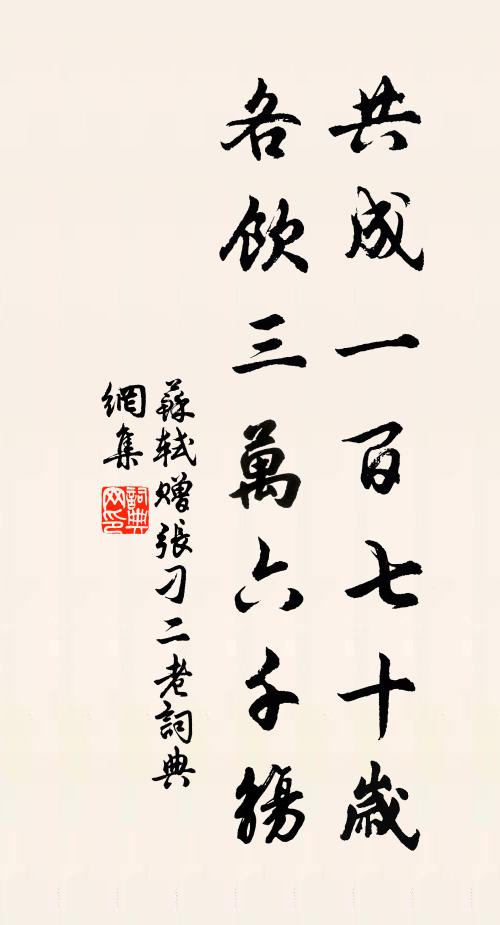 共成一百七十歲
各飲三萬六千觴
蘇軾贈張刁二老詞典
網集
詞典网印